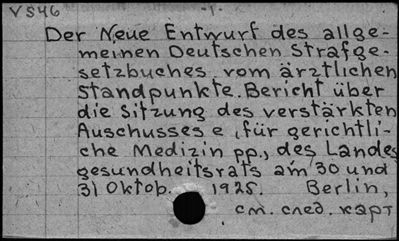 VS46 -1-
Der Neue Entwurf des allge-
meinen Deutschen Strafge-
setzbuches vom ärztlichen
Standpunkte. Bericht über
die Sitzung des verstärkten
Auschusses e, für gerichtli-
che Medizin pp., des Landes
gesundheitsrats am 30 und
31 Oktob. 1925. Berlin,
см. след. карт